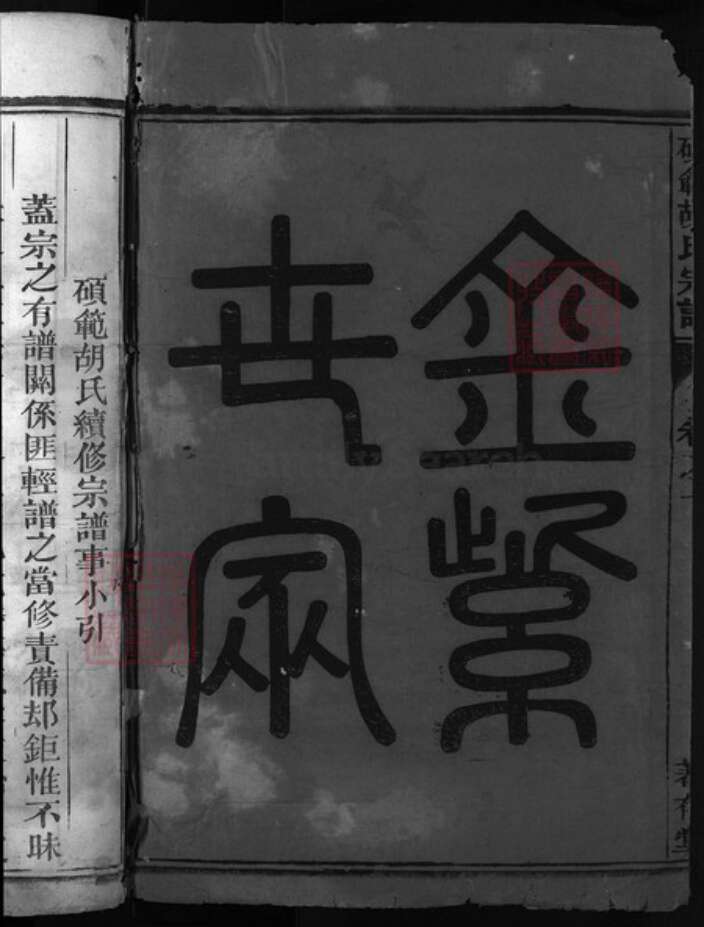 碩範胡氏宗譜
卷之一
著存堂
金紫
世家
碩範胡氏續修宗譜事小引
蓋宗之有譜關係匪輕譜之當修責備却鉅惟不昧